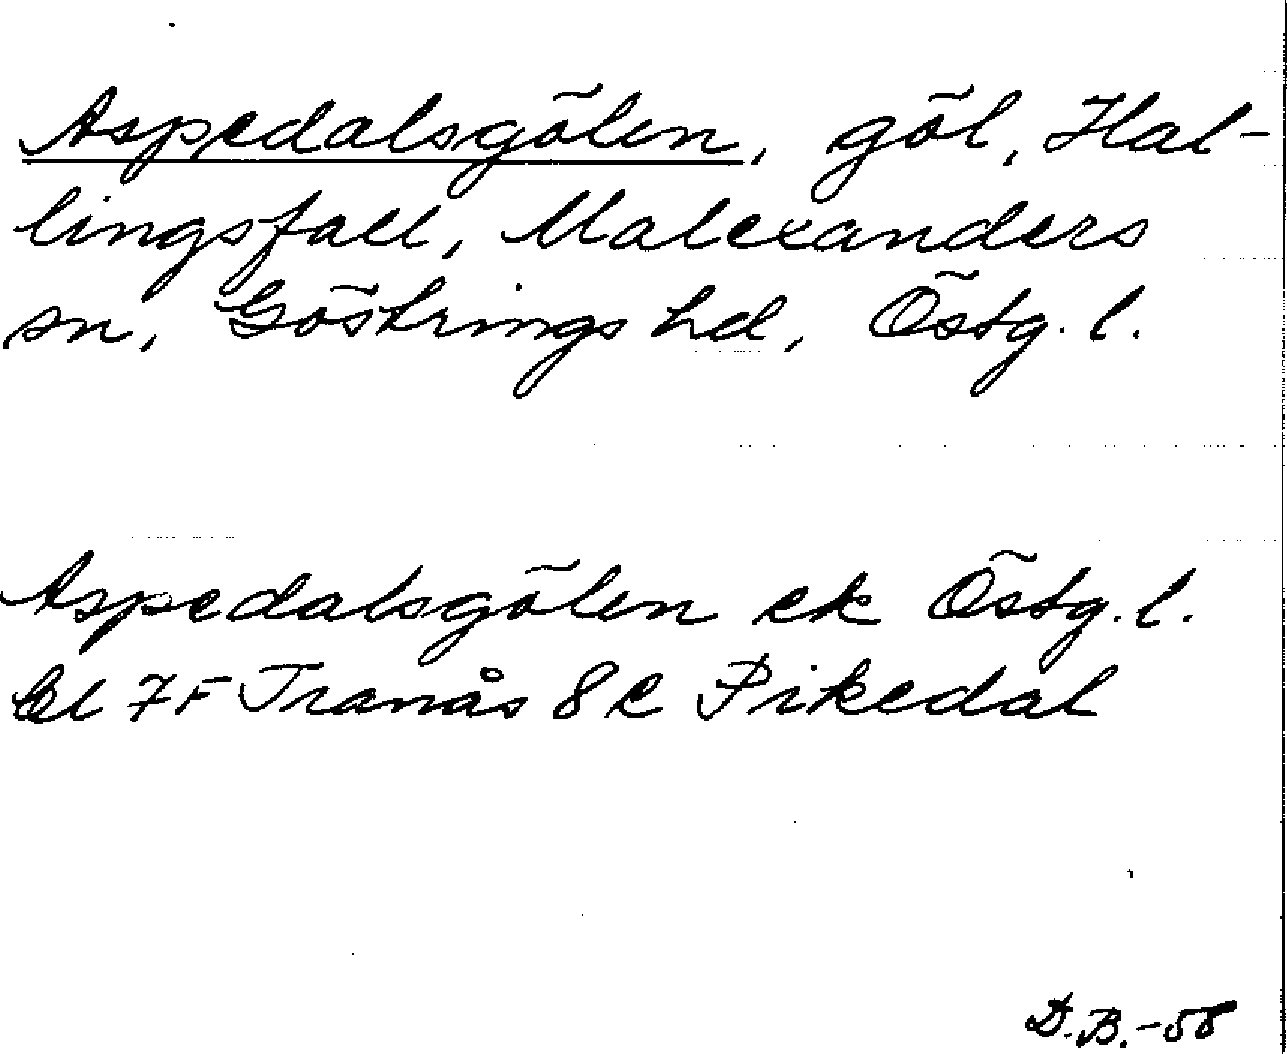 Aspedalsgölen, göl, Hal-
lingsfall, Malexanders
sn, Göstrings hd, Östg. l.
Aspedalsgölen ek Östg. l.
bl 7F Tranås 8 e Pikedal
D.B.-58